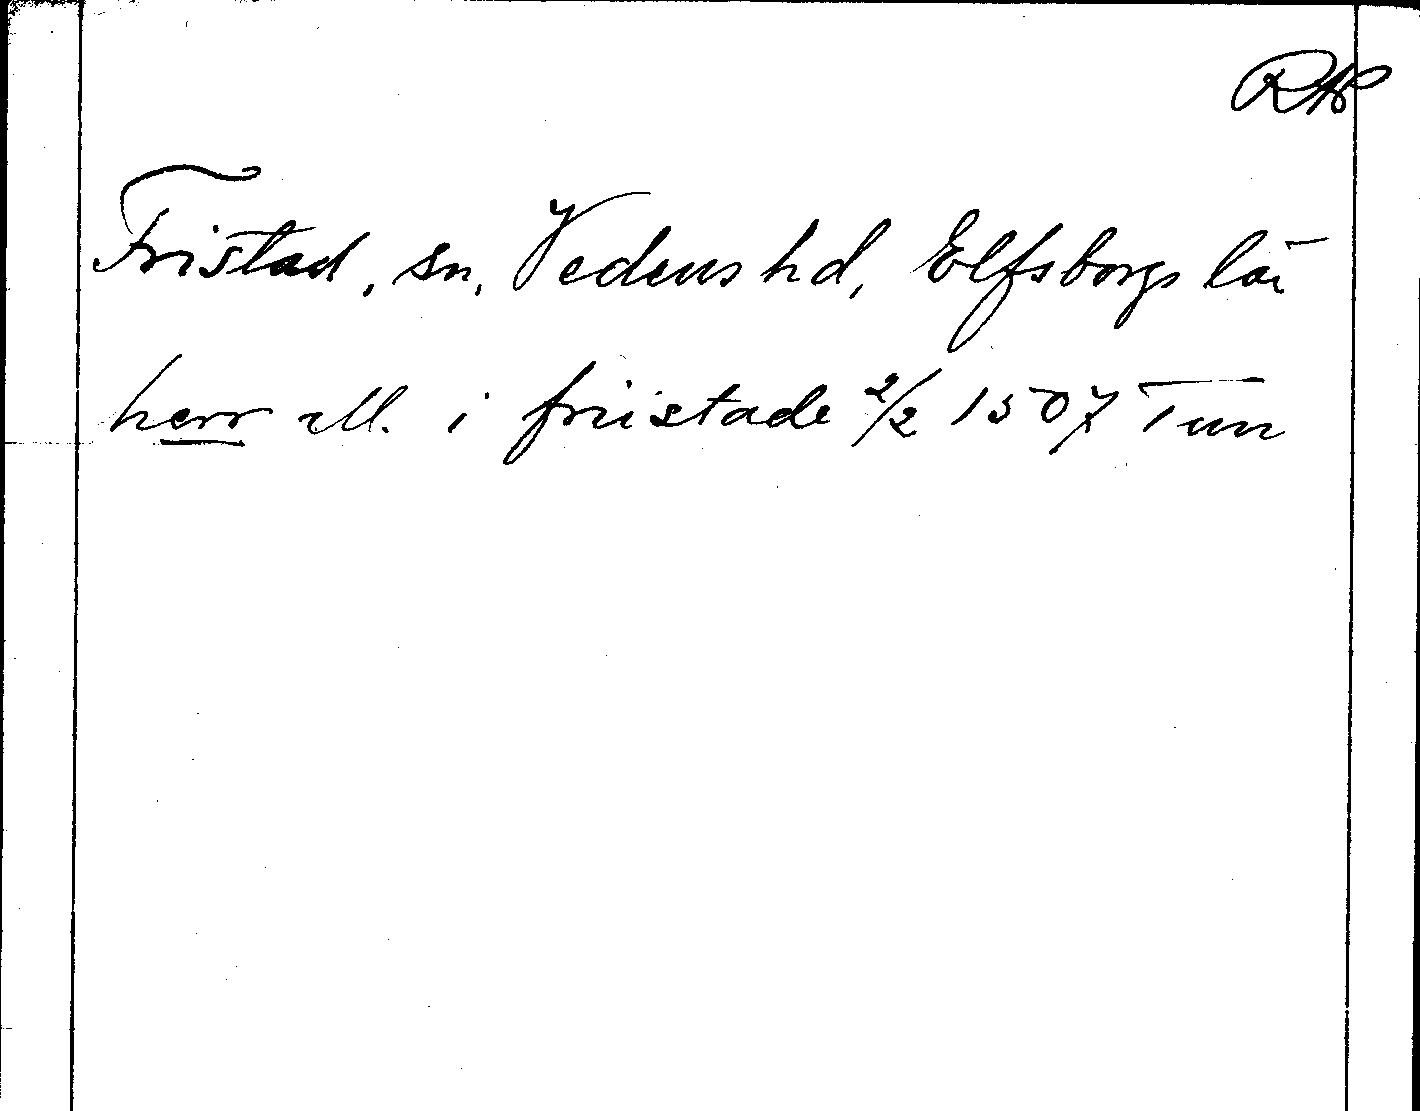 RAP
Fristad, sn, Vedens hd, Elfsborgs län
herr M. i friistade 2/2 1507 Tun